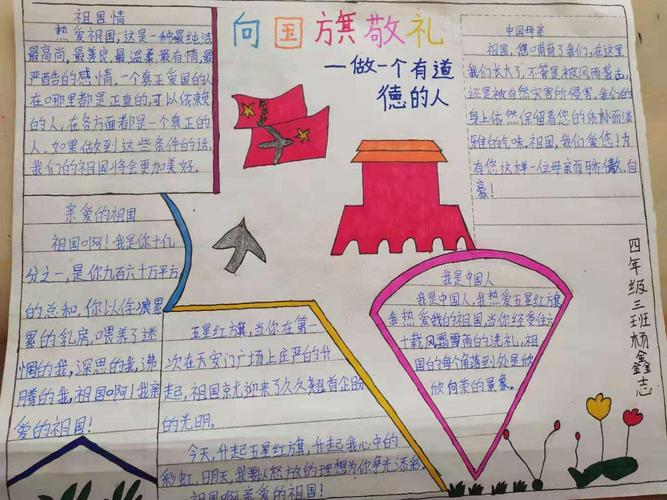 向国旗敬礼
—做一个有道
德的人
祖国情
热爱祖国，这是一种最纯洁
最高尚，最善良，最温柔，最有情，最
严酷的感情。一个真正爱国的人
在哪里都是正直的，可以依赖
的人，在各方面都是一个真正的
人。如果做到这些条件的话，
我们的祖国将会更加美好。
中国母亲
祖国，您哺育了我们，在这里
我们长大了，不管是被风雨袭击，
还是被自然灾害所侵害，我们的
身上依然保留着您的质朴而淡
雅的气味。祖国，我们爱您！为
有您这样一位母亲而骄傲、自
豪！
亲爱的祖国
祖国啊！我是你十亿
分之一，是你九百六十万平方
的总和，你以伤痕累
累的乳房，喂养了迷
惘的我，深思的我，沸
腾的我，祖国啊！我亲
爱的祖国！
五星红旗，当你在第一
次在天安门广场上庄严的升
起，祖国京尤迎来了久久翘首企盼
的光明。
今天，升起五星红旗，升起我心中的
彩虹，明天，我要以您放的理想为你争光添彩
祖国啊亲爱的祖国！
我是中国人
我是中国人，我热爱五星红旗
我热爱我的祖国，当你经受住六
十载风霜雪雨的洗礼，祖
国的每个角落到处是欣
欣向荣的景象。
四年级三班杨鑫志